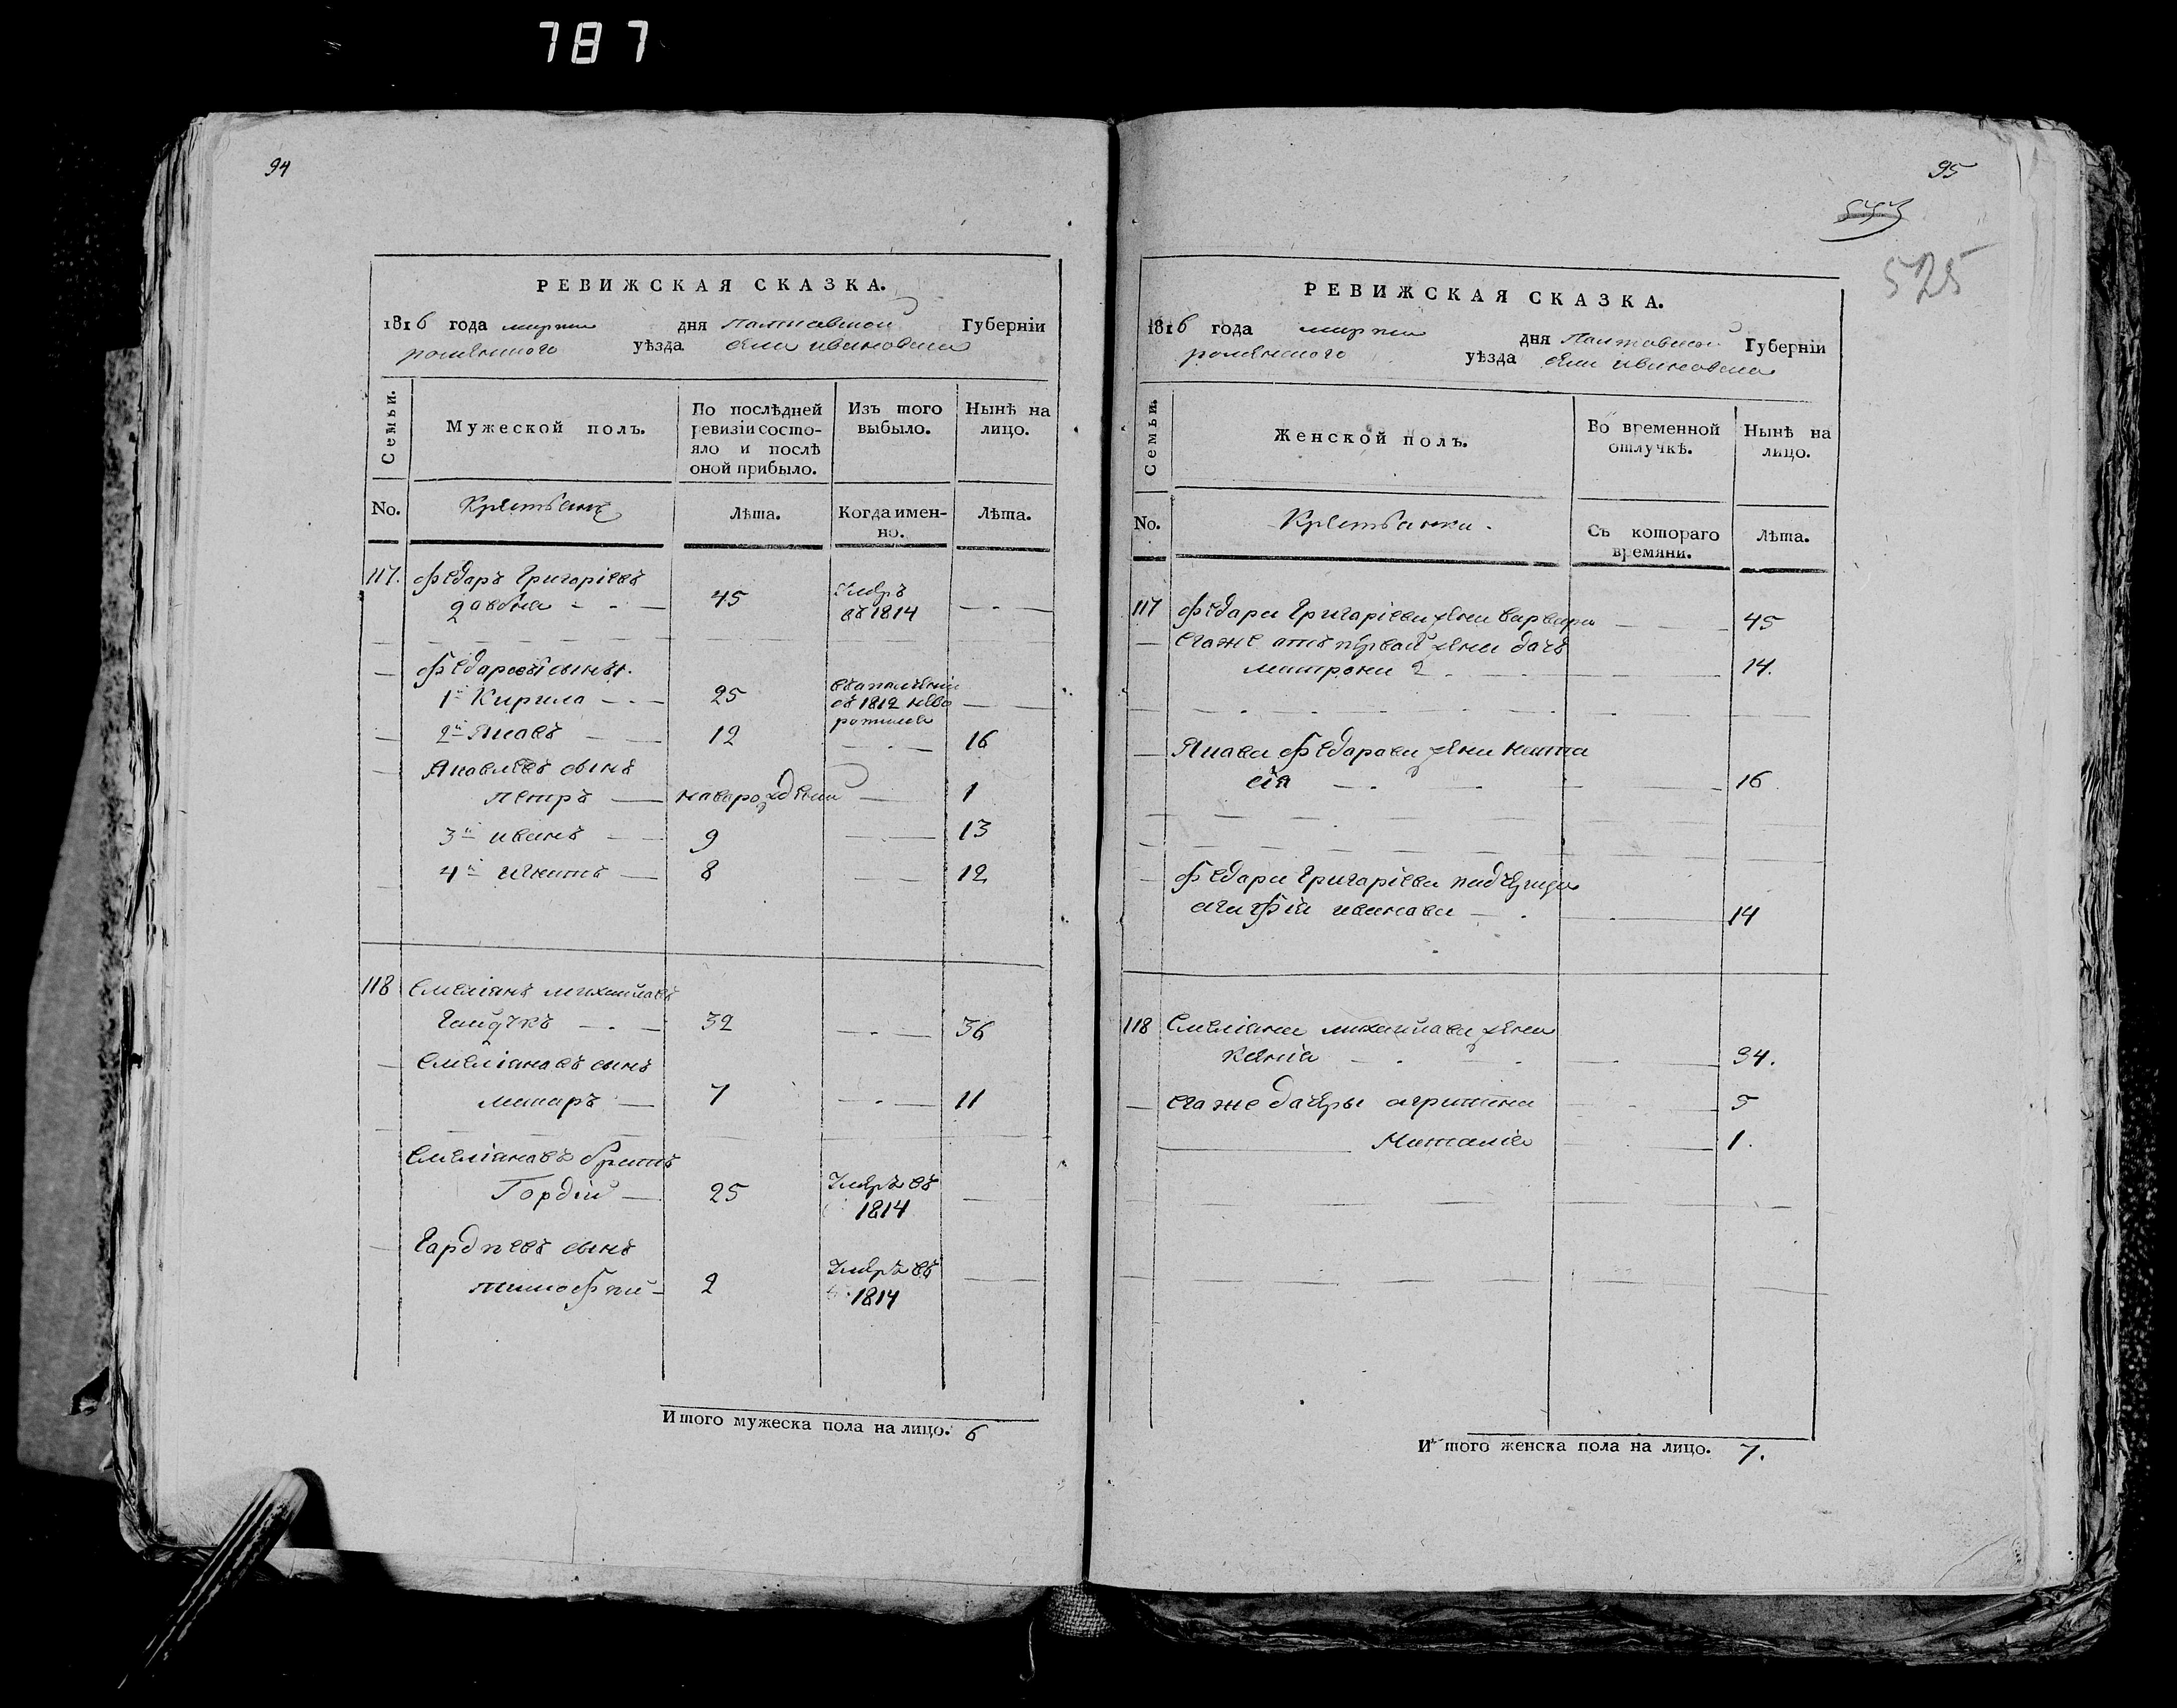 787
94
РЕВИЖСКАЯ СКАЗКА.
1816 года марта дня Полтавской Губерніи
роменского уѣзда села ивановки
Семьи.
Мужеской полъ.
По послѣдней ревизіи состояло и послѣ оной прибыло.
Изъ того выбыло.
Нынѣ на лицо.
No.
Крестьяне
Лѣта.
Когда имен-
но.
Лѣта.
117. Федаръ Григаріевъ
45 1814
Федаровы сыны.
1й Кирила 25
в 1812
2й Яковъ 12 16
Яковлевъ сынъ
петръ новорожденный 1
3й иванъ 9 13
4й игнатъ 8 12
118 Емеліянъ михайлавъ
Гайдукъ 32 36
Емеліянавъ сынъ
макаръ 7 11
Емеліянавъ братъ
Гордій 25 Умеръ въ 1814
Гардѣевъ сынъ
тимофій 2 Умеръ въ 1814
Итого мужеска пола на лицо. 6
95
525
РЕВИЖСКАЯ СКАЗКА.
1816 года марта дня Полтавской Губерніи
роменского уѣзда села ивановки
Семьи.
Женской полъ.
Во временной отлучкѣ.
Нынѣ на лицо.
No.
Крестьянки.
Съ котораго времяни.
Лѣта.
117 Федара Григаріева жена варвара 45
Егоже отъ первой жены дочь
матрона 14.
Якава Федарава жена наста
сія 16
Федара Григаріева падчерица
агафія иванава 14
118 Емеліяна михайлава жена
ксенія 34.
Егоже дочеры агрипина 5
Наталія 1.
Итого женска пола на лицо. 7.